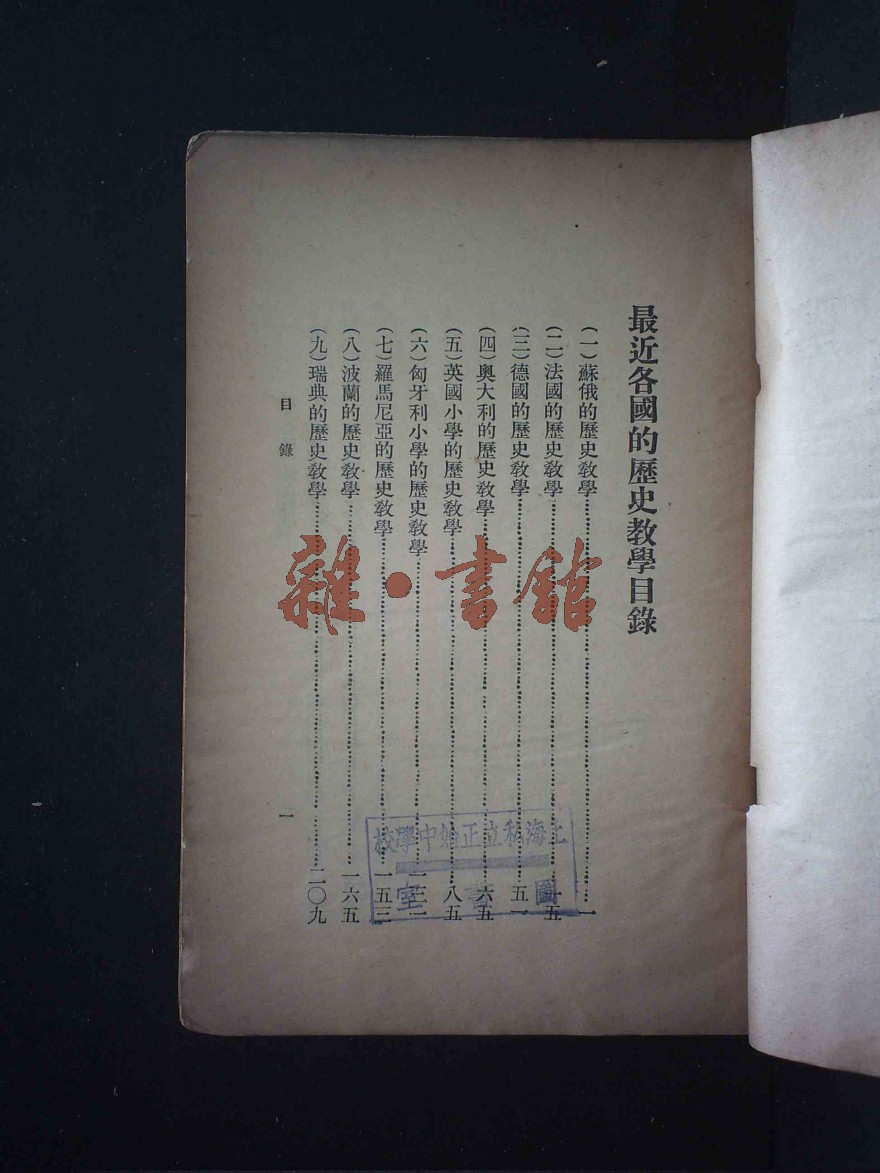 最近各國的歷史教學目錄
(一)蘇俄的歷史教學……一
(二)法國的歷史教學……一五
(三)德國的歷史教學……五一
(四)奧大利的歷史教學……六五
(五)英國小學的歷史教學……八五
(六)匈牙利小學的歷史教學……一三一
(七)羅馬尼亞的歷史教學……一五三
(八)波蘭的歷史教學……一六五
(九)瑞典的歷史教學……二〇九
目錄
一
雜·書館
上海私立正始中學校
圖書室